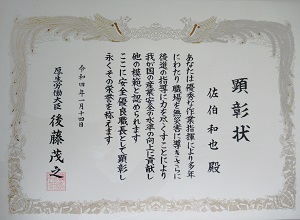 顕彰状
佐伯和也 殿
あなたは優秀な作業指揮により多年
にわたり職場を無災害に導きさらに
後進の指導に力を尽くすことにより
我が国の産業安全の水準の向上に貢献し
他の模範と認められます
ここに安全優良職長として顕彰し
永くその栄誉を称えます
令和四年一月十四日
厚生労働大臣 後藤茂之